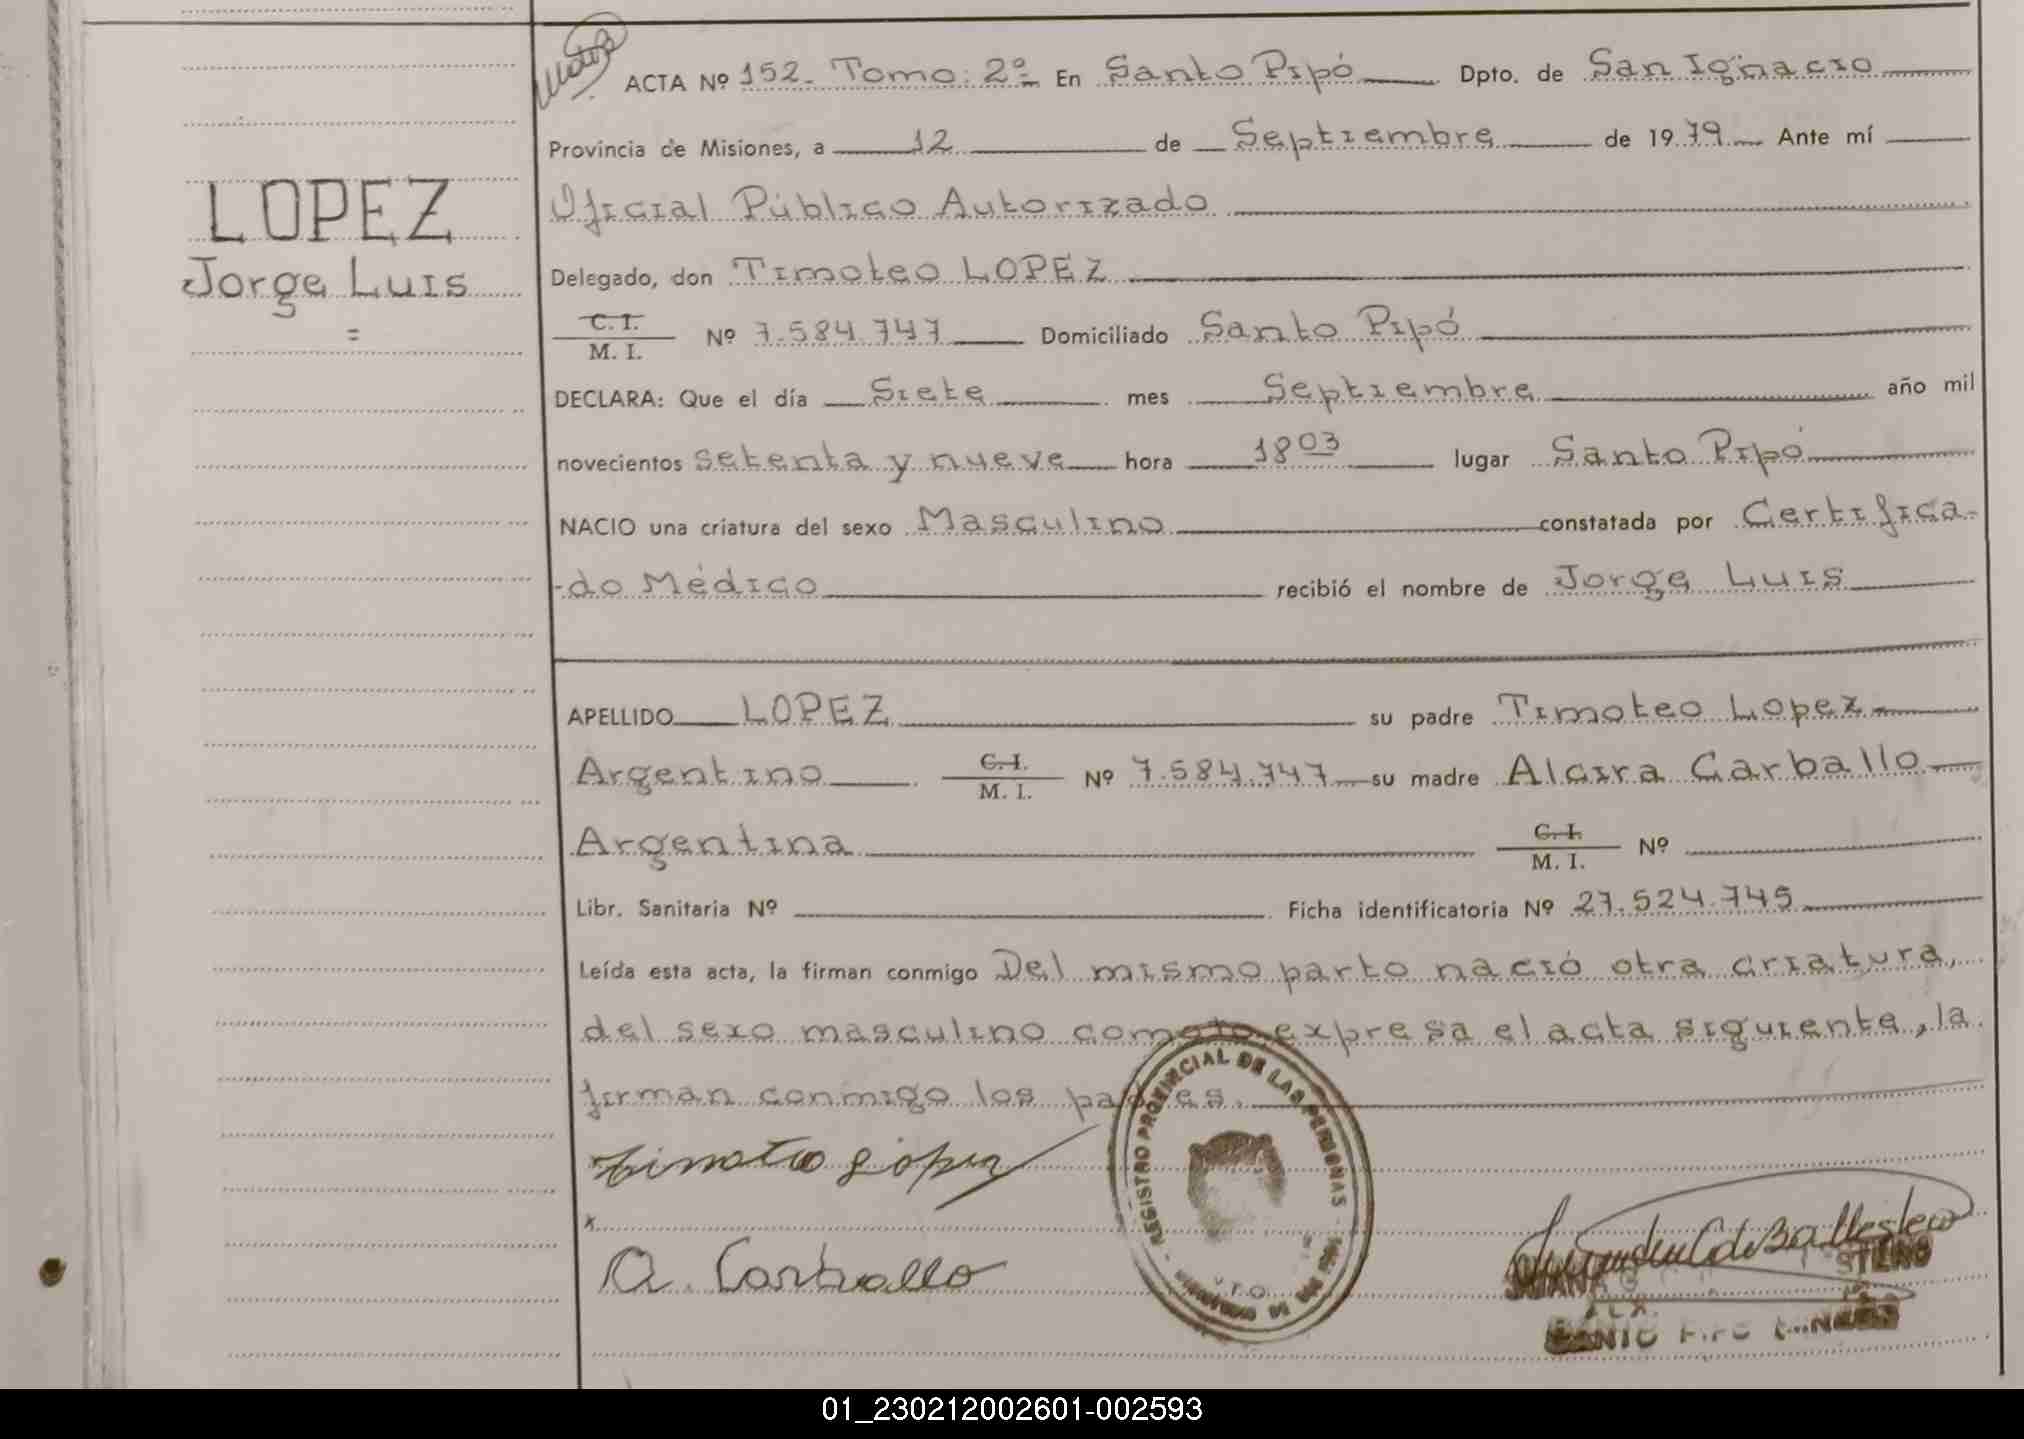 ACTA Nº 152. Tomo: 2º En Santo Pipó Dpto. de San Ignacio
Provincia de Misiones, a 12 de Septiembre de 1979 Ante mí
Oficial Público Autorizado
LOPEZ
Jorge Luis
=
Delegado, don Timoteo LOPEZ
C. I.
M. I. Nº 7.584.747 Domiciliado Santo Pipó
DECLARA: Que el día Siete mes Septiembre año mil
novecientos setenta y nueve hora 18 03 lugar Santo Pipó
NACIO una criatura del sexo Masculino constatada por Certifica-
-do Médico recibió el nombre de Jorge Luis
APELLIDO LOPEZ su padre Timoteo Lopez
Argentino C. I.
M. I. Nº 7.584.747 su madre Alcira Carballo
Argentina C. I.
M. I. Nº
Libr. Sanitaria Nº Ficha identificatoria Nº 27.524.745
Leída esta acta, la firman conmigo Del mismo parto nació otra criatura,
del sexo masculino como lo expresa el acta siguiente, la
firman conmigo los padres.
REGISTRO PROVINCIAL DE LAS PERSONAS
Timoteo López
x
A. Carballo
de Ballestero
SANTO PIPO
01_230212002601-002593